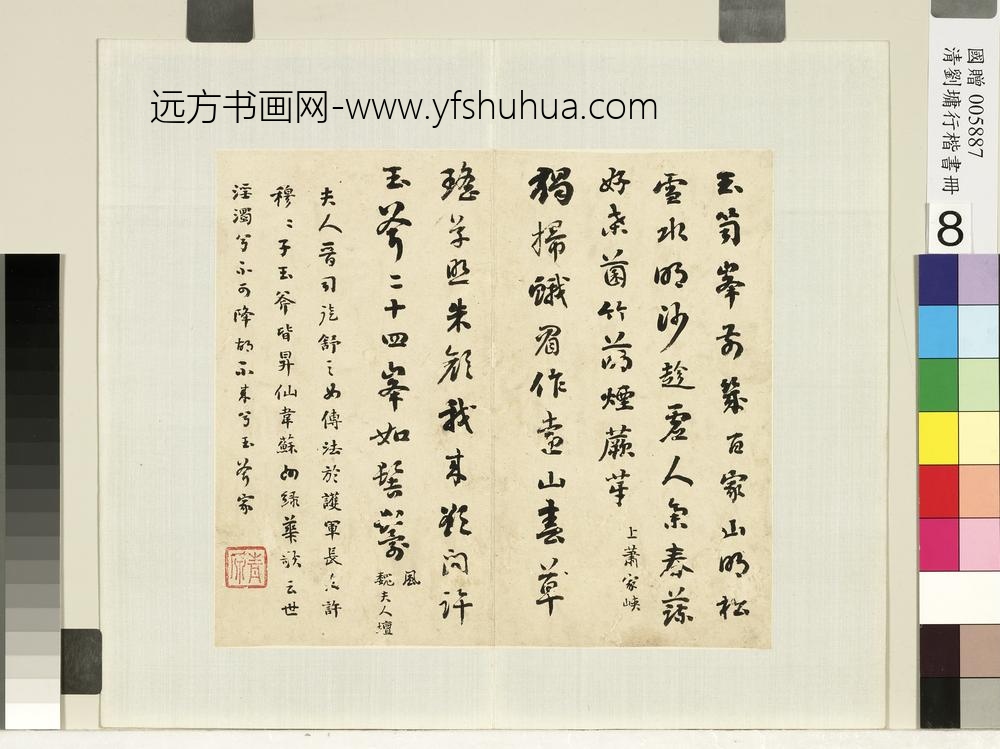 远方书画网-www.yfshuhua.com
國贈 005887
清劉墉行楷書冊
8
玉笥峯前幾百家山明松
雪水明沙趁虛人集春蔬
好桒菌竹萌煙蕨芽
上蕭家峽
獨掃蛾眉作遠山春草
瑤草照朱顏我來欲問許
玉斧二十四峯如髻鬟
風
魏夫人壇
夫人晉司徒舒之女傳法於護軍長史許
穆〻子玉斧皆昇仙韋蘇州綠華歌云世
淫濁兮不可降胡不來兮玉斧家
青原